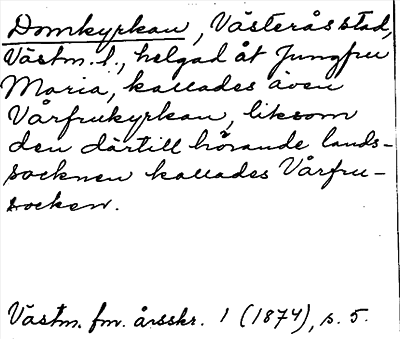 Domkyrkan, Västerås stad,
Västm. l., helgad åt Jungfru
Maria, kallades även
Vårfrukyrkan, liksom
den därtill hörande lands-
socknen kallades Vårfru-
socken.
Västm. fm. årsskr. 1 (1874), s. 5.